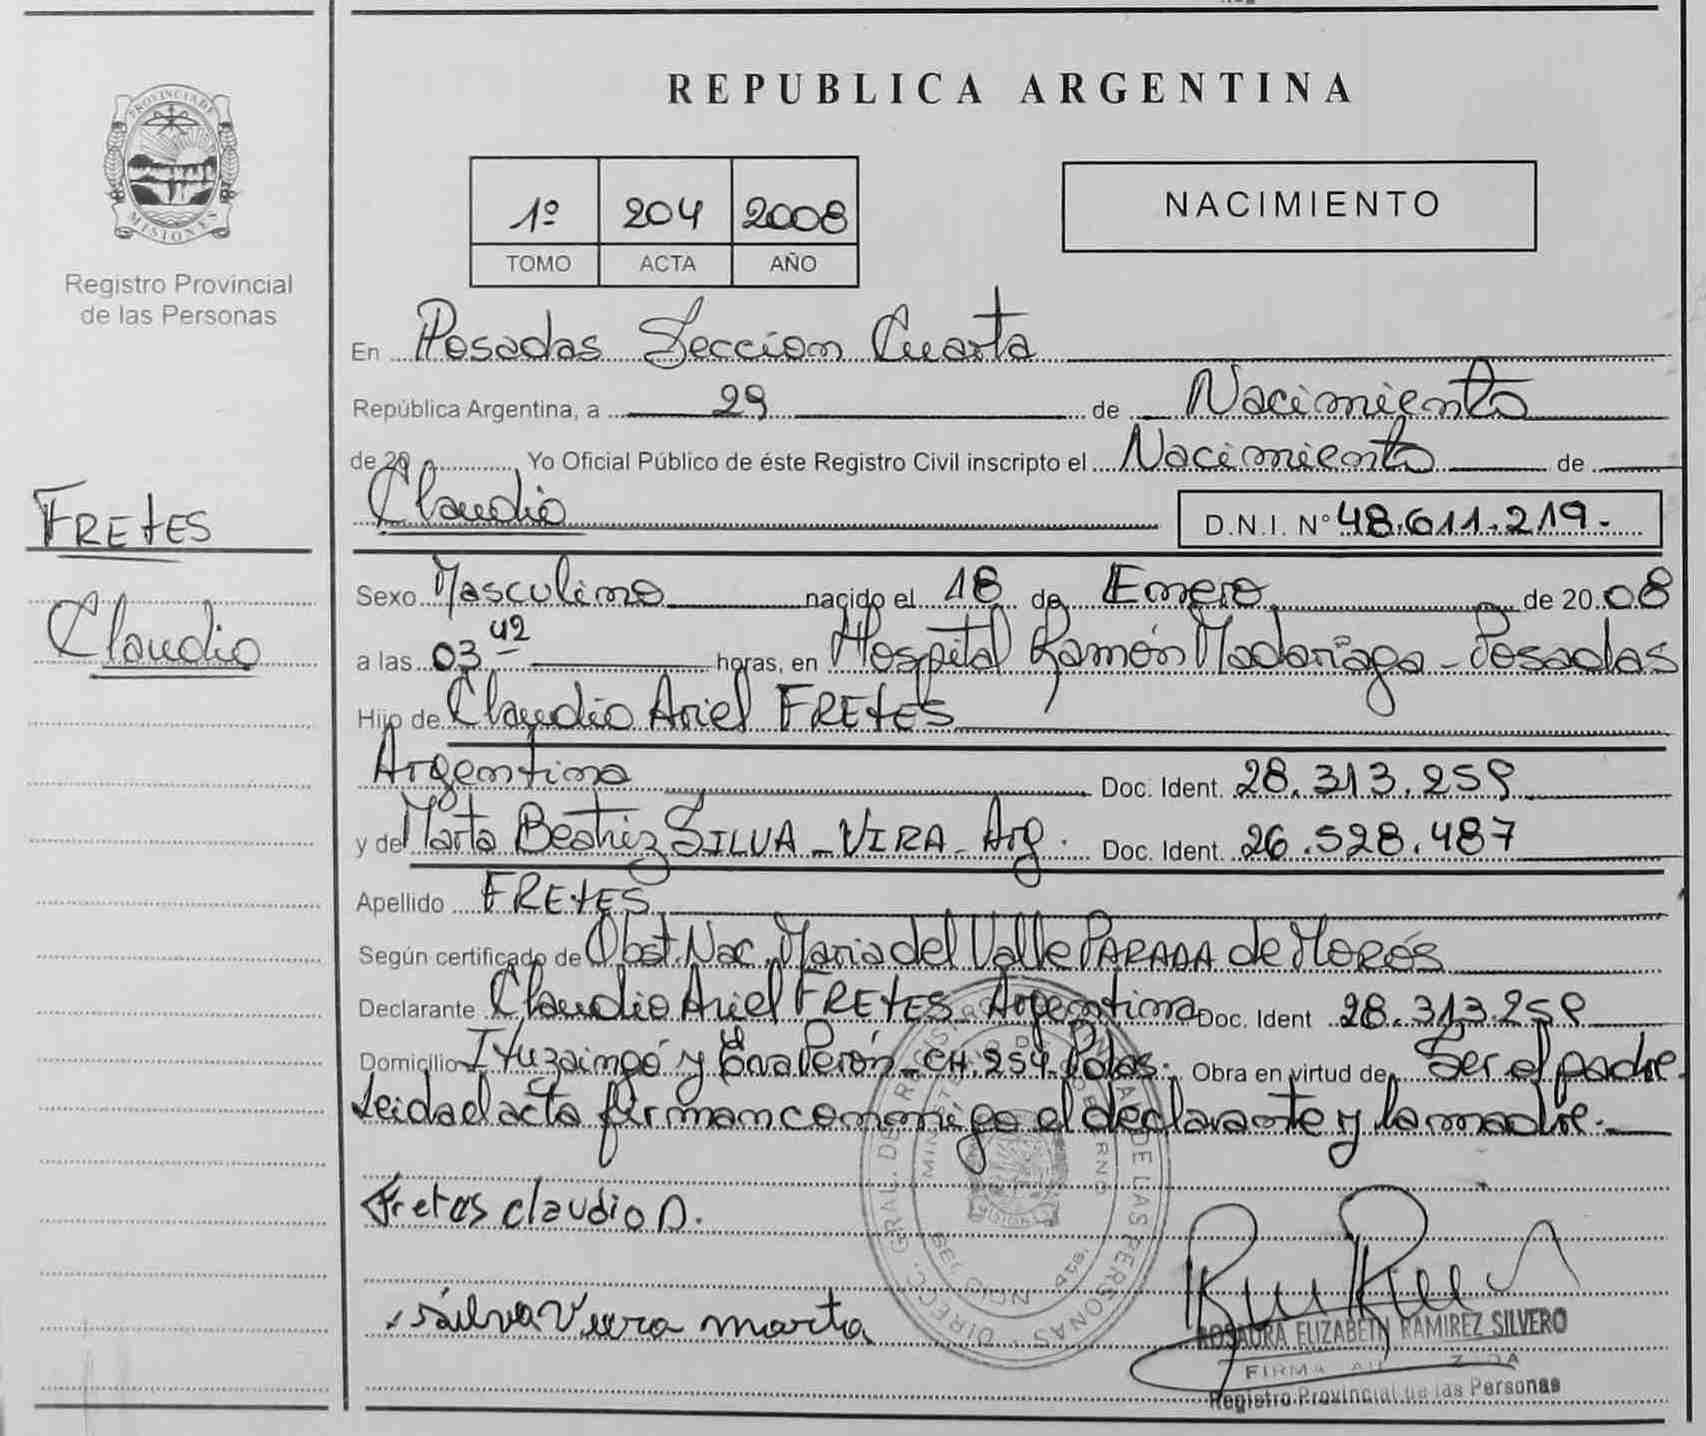 PROVINCIA DE
MISIONES
Registro Provincial
de las Personas
FRETES
Claudio
REPUBLICA ARGENTINA
1º 204 2008
TOMO ACTA AÑO
NACIMIENTO
En Posadas Seccion Cuarta
República Argentina, a 29 de Nacimiento
de 20 Yo Oficial Público de éste Registro Civil inscripto el Nacimiento de
Claudio D.N.I. N° 48.611.219.-
Sexo Masculino nacido el 18 de Enero de 20 08
a las 03 42 horas, en Hospital Ramón Madariaga - Posadas
Hijo de Claudio Ariel FRETES
Argentina Doc. Ident. 28.313.259
y de Marta Beatriz SILVA - VIRA - Arg. Doc. Ident. 26.528.487
Apellido FRETES
Según certificado de Obst. Nac. Maria del Valle PARADA de Morós
Declarante Claudio Ariel FRETES Argentina Doc. Ident 28.313.259
Domicilio Ituzaingó y Eva Perón - CH. 254. Pdas. Obra en virtud de Ser el padre.
Leida el acta firman conmigo el declarante y la madre.-
Fretes claudio A.
Silva Viera marta
DIREC. GRAL. DE REGISTRO DE LAS PERSONAS
ROSAURA ELIZABETH RAMIREZ SILVERO
FIRMA
Registro Provincial de las Personas